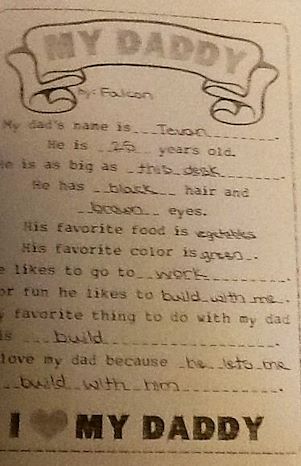 MY DADDY
by: Falcon
My dad's name is Tevan.
He is 25 years old.
He is as big as this desk.
He has black hair and
brown eyes.
His favorite food is vegetables
His favorite color is green.
e likes to go to work.
or fun he likes to build with me.
y favorite thing to do with my dad
is build.
love my dad because he lets me
build with him.
I MY DADDY